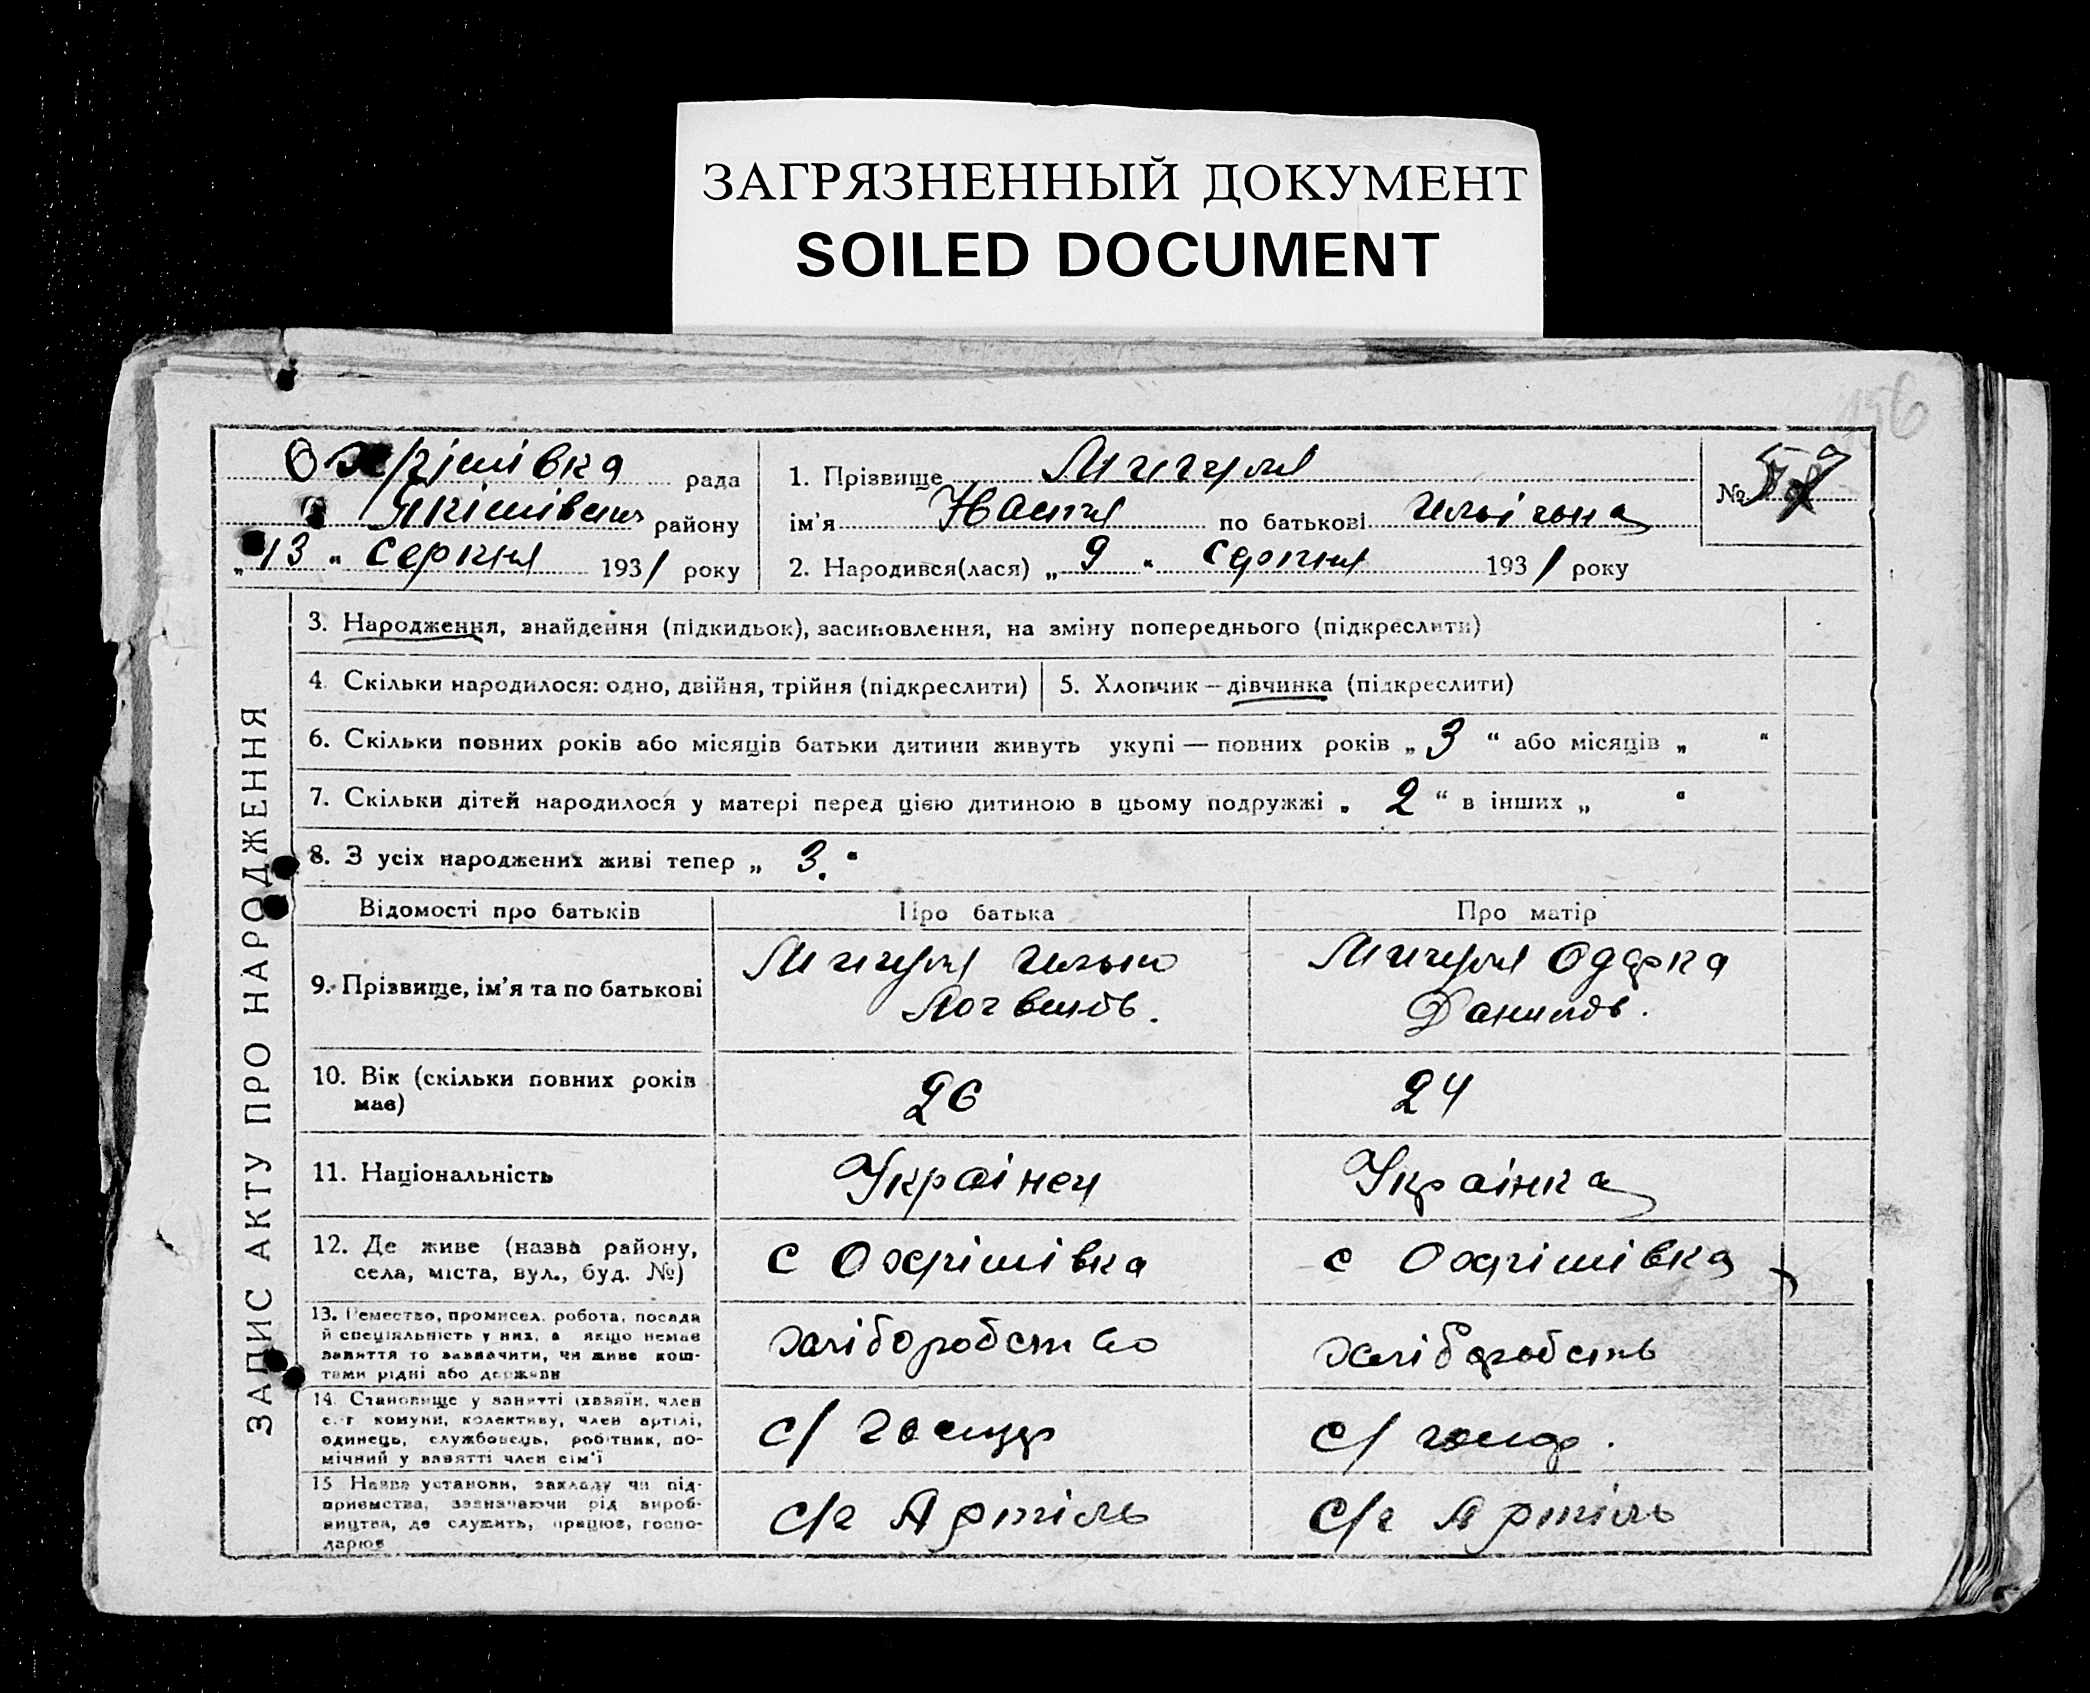 ЗАГРЯЗНЕННЫЙ ДОКУМЕНТ
SOILED DOCUMENT
156
Охрімівка рада
Якімівськ району
„13“ серпня 1931 року
1. Прізвище Мигуля
ім'я Настя по батькові Ильівна
2. Народився(лася) „9“ серпня 1931 року
№
ЗАПИС АКТУ ПРО НАРОДЖЕННЯ
3. Народження, знайдення (підкидьок), засиновлення, на зміну попереднього (підкреслити)
4. Скільки народилося: одно, двійня, трійня (підкреслити)
5. Хлопчик – дівчинка (підкреслити)
6. Скільки повних років або місяців батьки дитини живуть укупі — повних років „3“ або місяців „ “
7. Скільки дітей народилося у матері перед цією дитиною в цьому подружжі „2“ в інших „ “
8. З усіх народжених живі тепер „3.“
Відомості про батьків Про батька Про матір
9. Прізвище, ім'я та по батькові
Мигуля Илько
Логвинов.
Мигуля Одарка
Данилов.
10. Вік (скільки повних років
має)
26
24
11. Національність
Украінец
Украінка
12. Де живе (назва району,
села, міста, вул., буд. №)
с Охрімівка
с Охрімівка
13. Ремество, промисел, робота, посада
й спеціяльність у них, а якщо немає
заняття то зазначити, чи живе кош-
тами рідні або держави
хліборобство
хлібороб
14. Становище у занятті (хазяїн, член
с.-г комуни, колективу, член артілі,
одинець, службовець, робітник, по-
мічний у занятті член сім'ї
с/
с/
15 Назва установи, закладу чи під-
приємства, зазначаючи рід вироб-
ництва, де служить, працює, госпо-
дарює
с/г Артіль
с/г Артіль